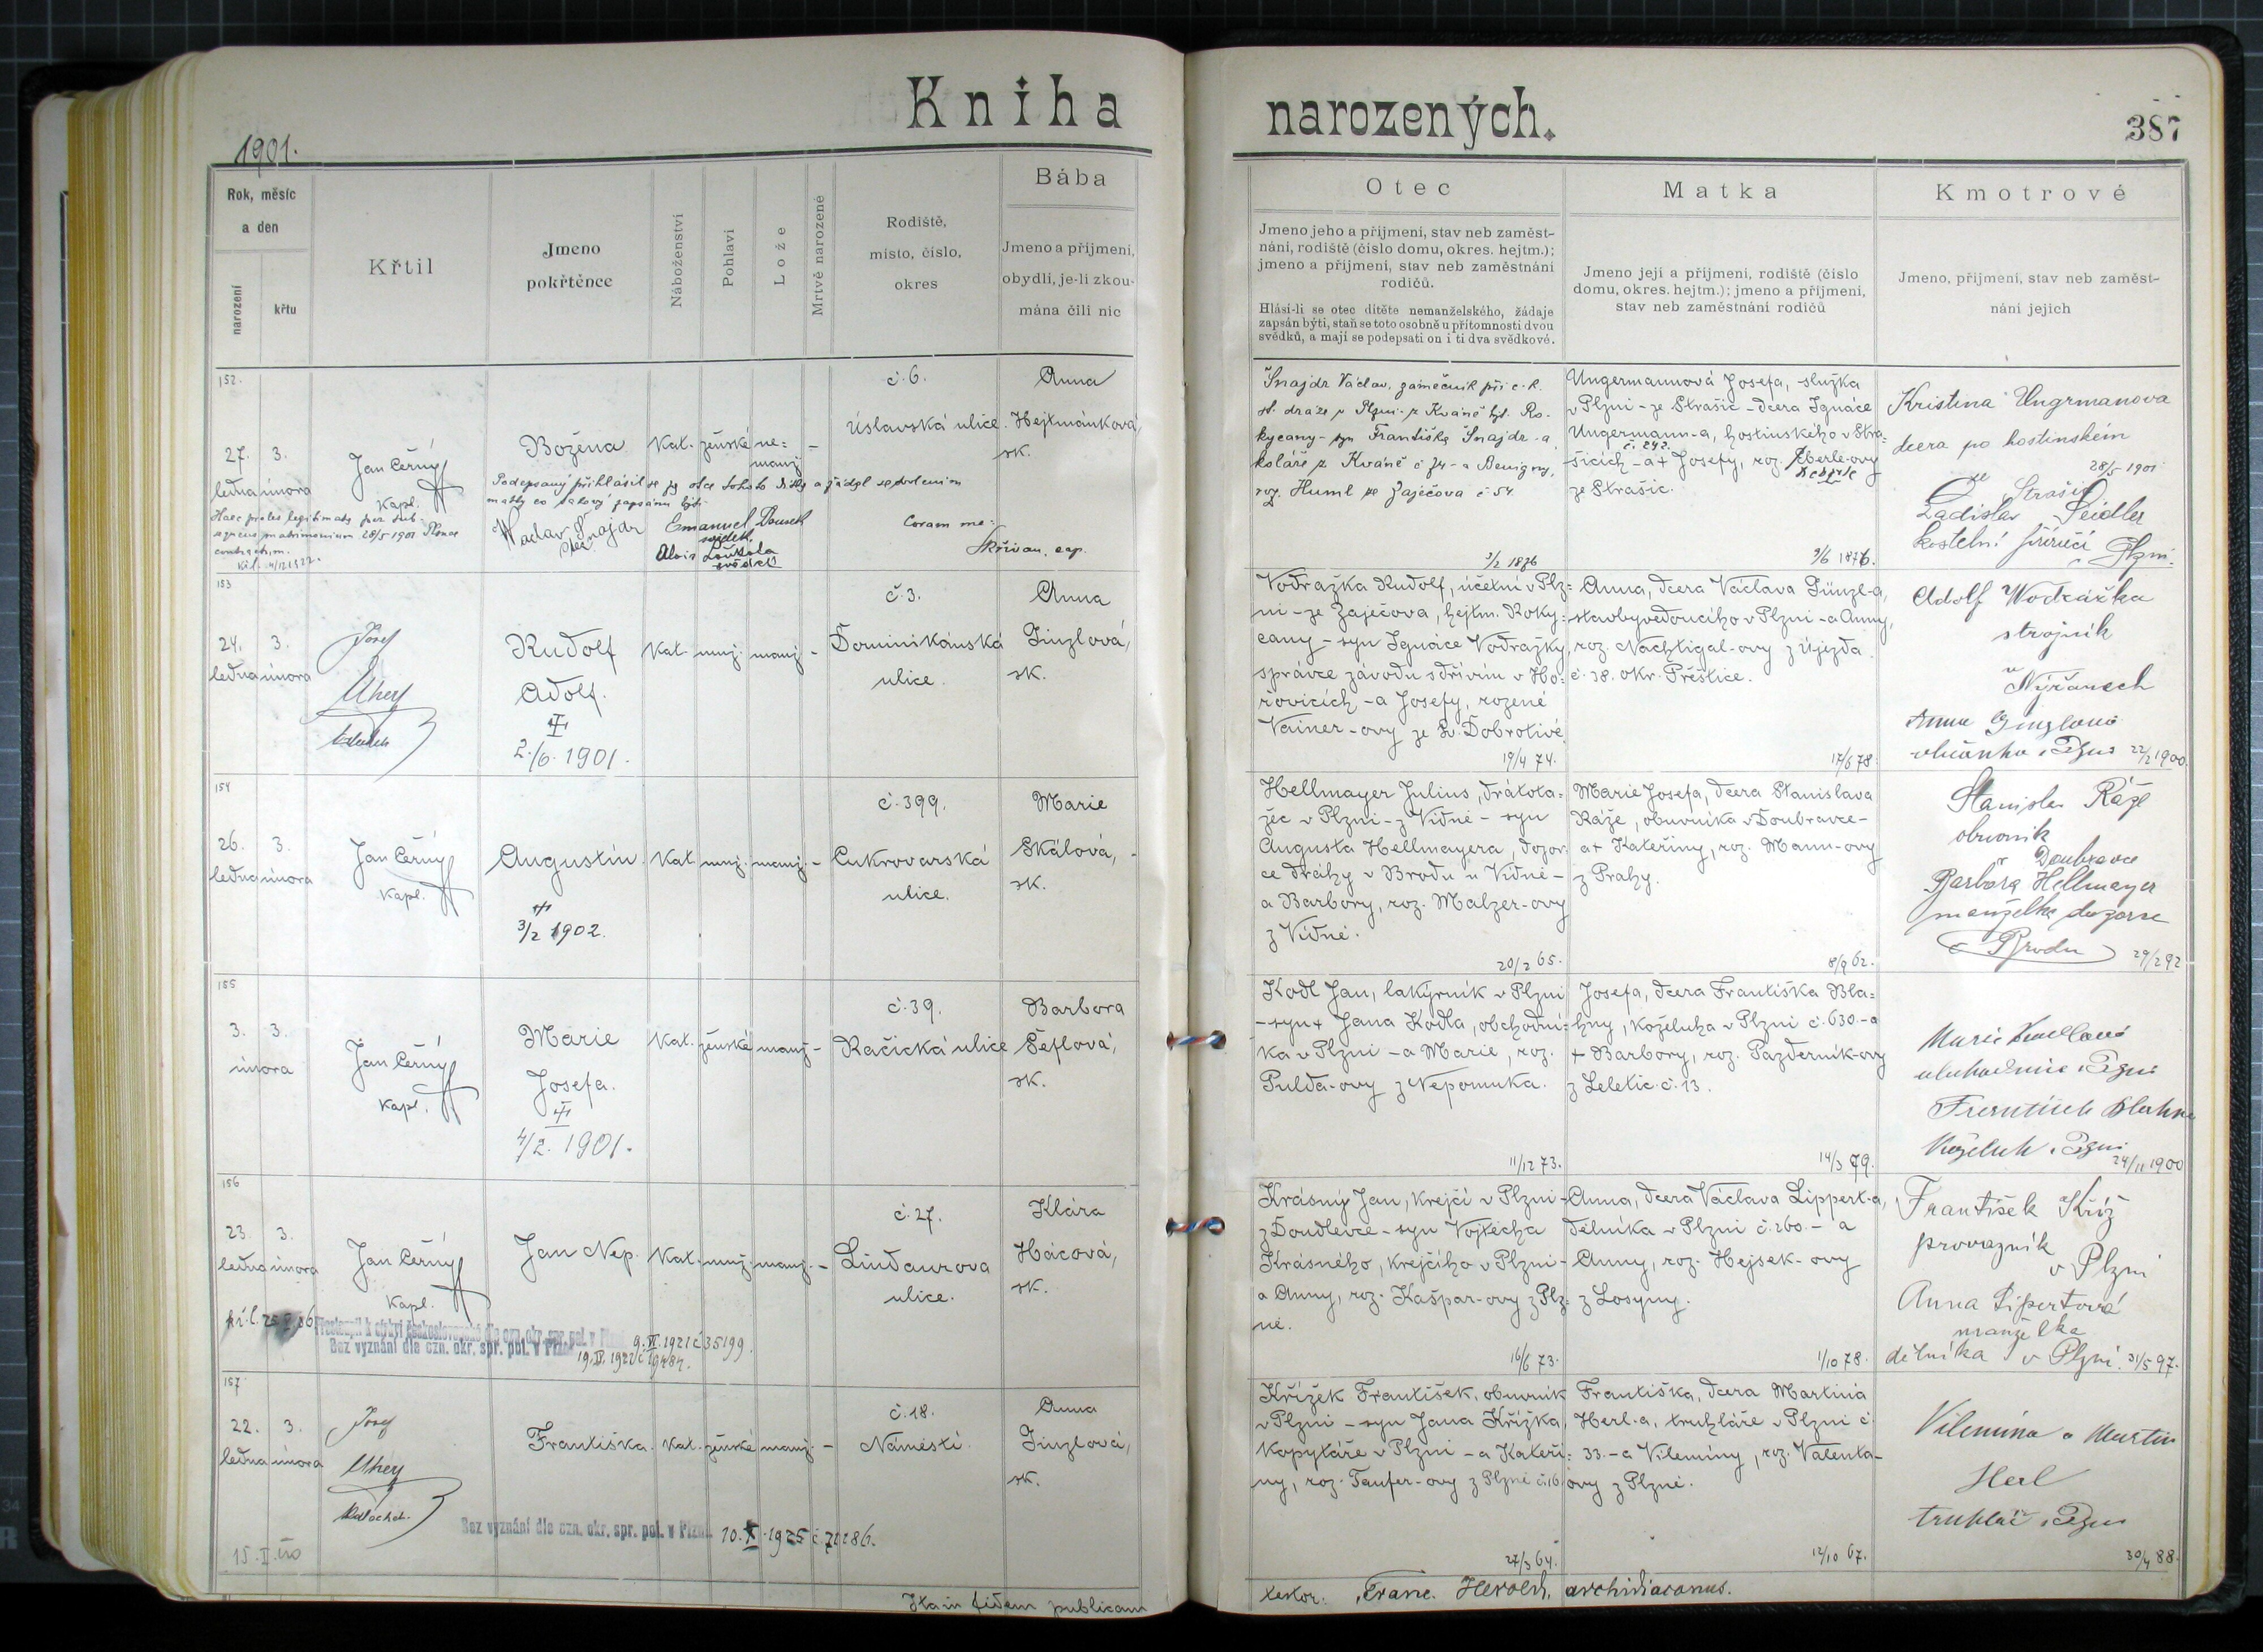 Kniha narozených.
387
1901.
Rok, měsíc
a den
narození
křtu
Křtil
Jmeno
pokřtěnce
Náboženství
Pohlaví
Lože
Mrtvě narozené
Rodiště,
místo, číslo,
okres
Bába
Jmeno a příjmení,
obydlí, je-li zkou-
mána čili nic
Otec
Jmeno jeho a příjmení, stav neb zaměst-
nání, rodiště (číslo domu, okres. hejtm.);
jmeno a příjmení, stav neb zaměstnání
rodičů.
Hlásí-li se otec dítěte nemanželského, žádaje
zapsán býti, staň se toto osobně u přítomnosti dvou
svědků, a mají se podepsati on i ti dva svědkové.
Matka
Jmeno její a příjmení, rodiště (číslo
domu, okres. hejtm.); jmeno a příjmení,
stav neb zaměstnání rodičů
Kmotrové
Jmeno, příjmení, stav neb zaměst-
nání jejich
152.
27. ledna
3. února
Jan Černý
Kapl.
Božena
Kat. ženské ne=
manž.
-
č. 6.
Úslavská ulice.
Anna
Hejtmánková,
sk.
Podepsaný přihlásil se za otce tohoto dítka a žádal se dovolením
matky co takový zapsánu býti.
Haec proles legitimata per sub-
sequens matrimonium 28/5 1901 Plsnae
contractum.
Waclav Šnajdr
otec
Emanuel
svědek.
Alois
svědek
Coram me:
Skřivan, cap.
Šnajdr Václav, zámečník při c. k.
st. dráze v Plzni - z Kváně hjt. Ro-
kycany - syn Františka Šnajdr-a,
koláře z Kváně č 74 - a Benigny,
roz. Huml ze Zaječova č 54.
3/2 1876
Ungermannová Josefa, služka
v Plzni - ze Strašic - dcera Ignáce
Ungermann-a, hostinského v Stra=
č. 242.
šicích - a + Josefy, roz. Eberle-ovy
ze Strašic.
9/6 1876.
Kristina Ungrmanova
dcera po hostinském
28/5 1901
ze Strašic
Ladislav Seidler
kostelní
Plzni.
153
24. ledna
3. února
Josef
Uhey
Rudolf
Adolf.
2./6. 1901.
Kat. muž. manž. -
č. 3.
Dominikánská
ulice.
Anna
Jinzlová,
sk.
Vodražka Rudolf, účetní v Plz=
ni - ze Zaječova, hejtm. Roky=
cany - syn Ignáce Vodražky,
správce závodu s dřívím v Ho=
řovicích - a Josefy, rozené
Vainer-ovy ze Sv. Dobrotivé.
19/4 74.
Anna, dcera Václava Günzl-a,
stavbyvedoucího v Plzni - a Anny,
roz. Nachtigal-ovy z Újezda
č. 38. okr. Přeštice.
17/6 78.
Adolf Wodražka
strojník
v Nýřanech
Anna
22/2 1900.
154
26. ledna
3. února
Jan Černý
Kapl.
Augustin.
3/2 1902.
Kat. muž. manž. -
č. 399.
Cukrovarská
ulice.
Marie
Skálová,
sk.
Hellmayer Julius, drátota=
žec v Plzni - z Vídně - syn
Augusta Hellmayera, dozor=
ce dráhy v Brodu u Vídně -
a Barbory, roz. Malzer-ovy
z Vídně.
20/2 65.
Marie Josefa, dcera Stanislava
Ráže, obuvníka v Doubravce -
a + Kateřiny, roz. Mann-ovy
z Prahy.
8/9 62.
Stanislav Ráže
obuvník
v Doubravce
Barbora Hellmayer
manželka dozorce
v Brodu
29/2 92
155
3. února
3.
Jan Černý
Kapl.
Marie
Josefa.
4/2. 1901.
Kat. ženské manž. -
č. 39.
Račická ulice
Barbora
Šeflová,
sk.
Kodl Jan, lakýrník v Plzni
- syn + Jana Kodla, obchodní=
ka v Plzni - a Marie, roz.
Pulda-ovy z Nepomuka.
11/12 73.
Josefa, dcera Františka Bla=
hny, koželuha v Plzni č. 630. - a
+ Barbory, roz. Pazderník-ovy
z Letetic č. 13.
14/3 79.
Marie
František Blahna
Koželuh v Plzni
24/11 1900
156
23. ledna
3. února
Jan Černý
Kapl.
Jan Nep.
Kat. muž. manž. -
č. 27.
Lindaurova
ulice.
Klára
Hácová,
sk.
Přestoupil k církvi československé dle ozn. okr. spr. pol. v Plzni 9. VI. 1921 č 35199.
Bez vyznání dle ozn. okr. spr. pol. v Plzni 19. IV. 1922 č 19484.
Krásný Jan, krejčí v Plzni -
z Doudlevce - syn Vojtěcha
Krásného, krejčího v Plzni -
a Anny, roz. Kašpar-ovy z Plz=
ně.
16/6 73.
Anna, dcera Václava Lippert-a,
dělníka v Plzni č. 260. - a
Anny, roz. Hejsek-ovy
z Losyny.
1/10 78.
František Kříž
provazník
v Plzni
Anna Lipertová
manželka
dělníka v Plzni. 31/5 97.
157
22. ledna
3. února
Josef
Uhey
Františka.
Kat. ženské manž. -
č. 18.
Náměstí.
Anna
Jinzlová,
sk.
Bez vyznání dle ozn. okr. spr. pol. v Plzni. 10. X. 1925 č. 71286.
Křížek František, obuvník
v Plzni - syn Jana Křížka,
kopytáře v Plzni - a Kateři=
ny, roz. Taufer-ovy z Plzně č. 16.
27/3 64.
Františka, dcera Martina
Herl-a, truhláře v Plzni č.
33. - a Vilemíny, roz. Valenta-
ovy z Plzně.
12/10 67.
Vilemína a Martin
Herl
truhlář v Plzni
30/4 88.
Ita in fidem publicam
testor: Franc. Herold, archidiaconus.